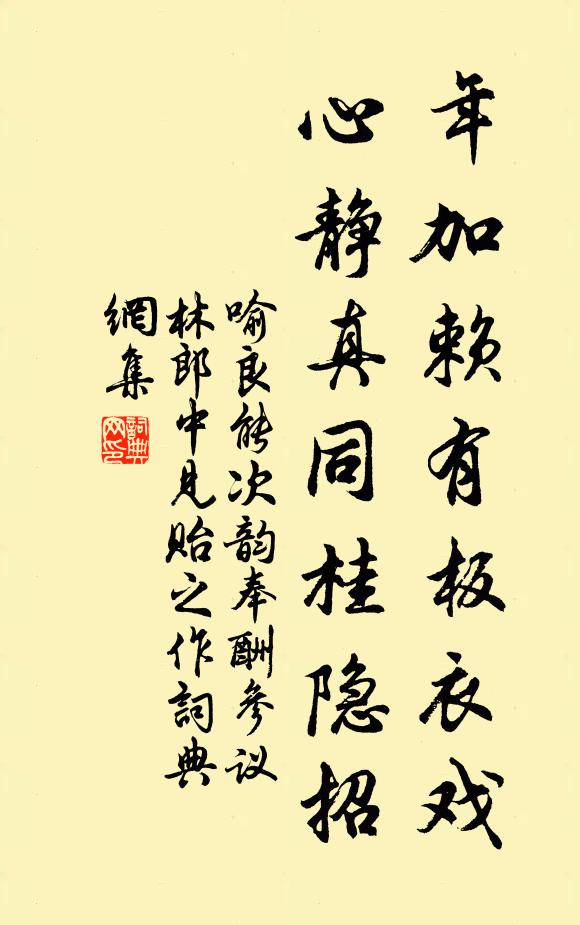 年加赖有板衣戏
心静真同桂隐招
喻良能次韵奉酬参议
林郎中见贻之作詞典
網集
詞典
网印